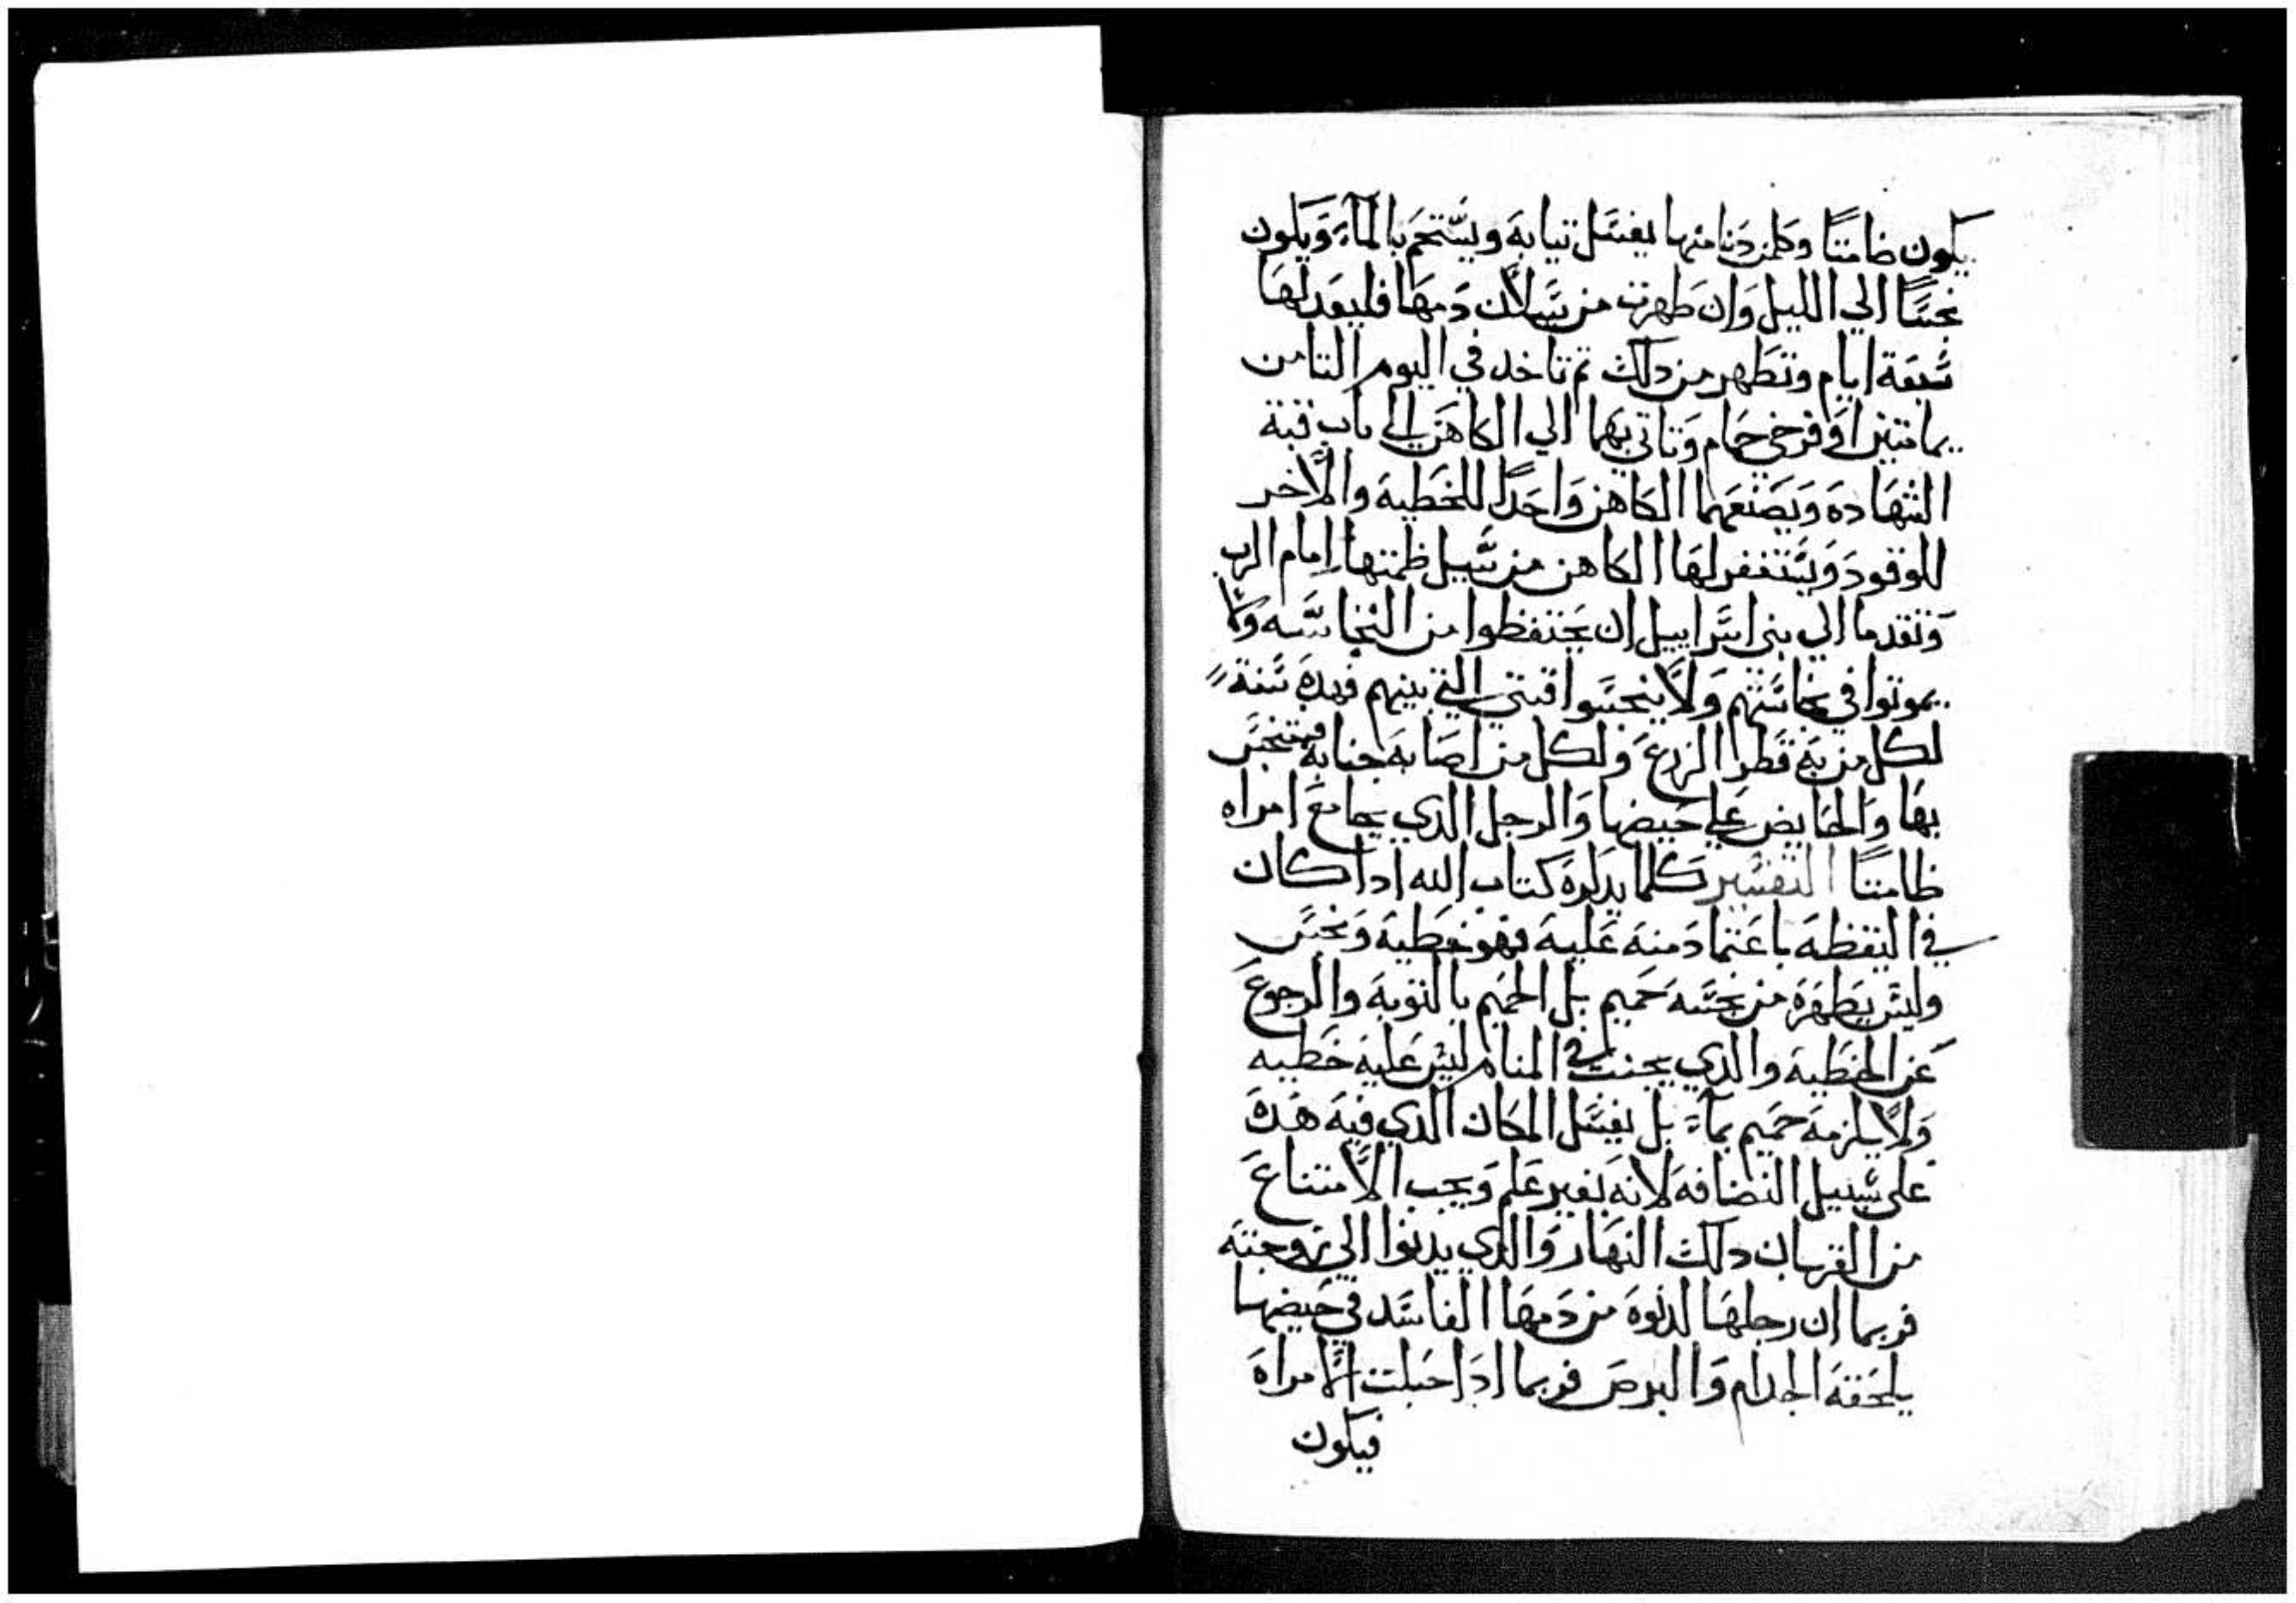 يكون ظامتا وكلمن دنا منها يغسل تيابه ويستحم بالمآء ويكون
نجسا الي الليل وان طهرت من سيلان دمها فليعد لها
سبعة ايام وتطهر من دلك تم تاخد في اليوم التامن
يمامتين او فرخي حمام وتاتي بهما الي الكاهن الي باب قبة
الشهاده ويصنعهما الكاهن واحدا للخطية والآخر
للوقود ويستغفر لها الكاهن من سيل ظمتها امام الرب
وتقدما الي بني اسراييل ان يحتفظوا من النجاسه وكلا
يموتوا في نجاستهم ولا ينجسوا قبتي التي بينهم فهده سنة
لكل من به قطر الزرع ولكل من اصابه جنابة فيتنجس
بها والحايض علي حيضها والرجل الدي يجامع امراه
ظامتا التفسير كلما يدكره كتاب الله ادا كان
في اليقظه باعتماد منه عليه فهو خطية ونجس
وليس يطهره من نجسه حميم بل الحميم بالتوبه والرجوع
عن الخطية والدي يجنب في المنام ليس عليه خطيه
ولا يلزمه حميم بمآء بل يغسل المكان الدي فيه هده
علي سبيل النضافه لانه بغير علم ويجب الامتناع
من القربان دلك النهار والدي يدنوا الي زوجته
فربما ان رجلها لدنوه من دمها الفاسد في حيضها
يلحقه الجدام والبرص فربما ادا حبلت الامراه
فيكون